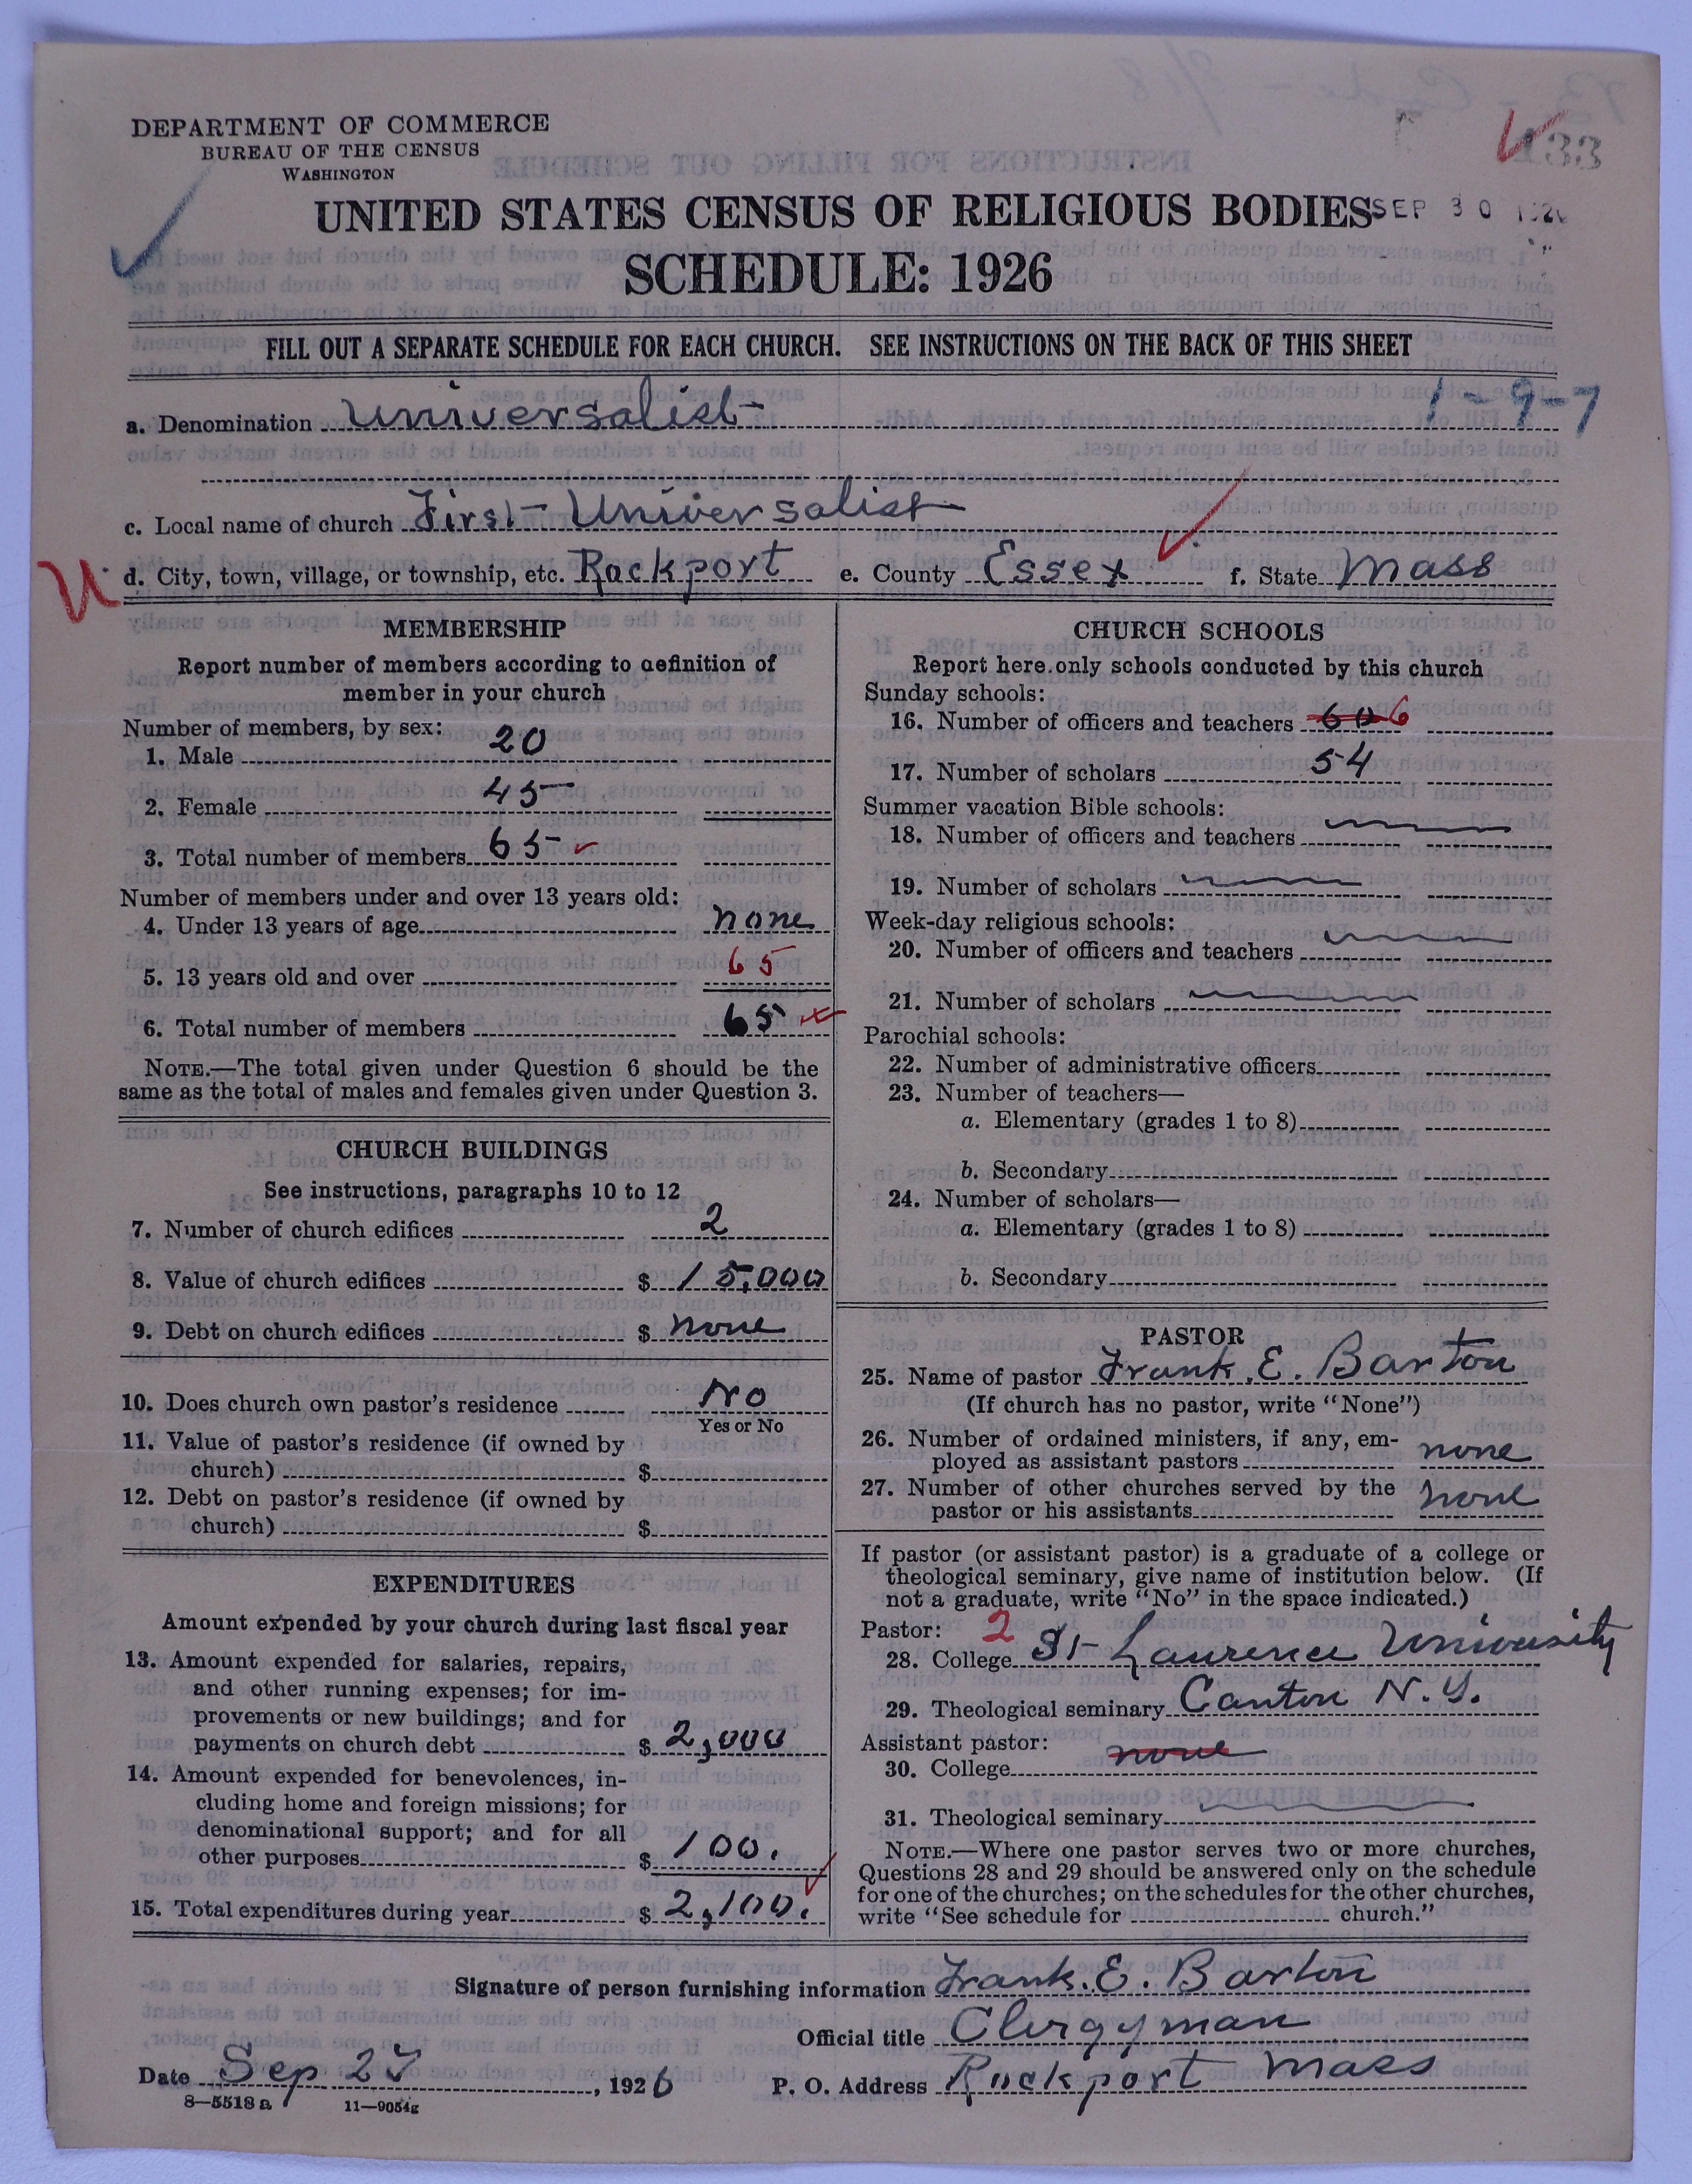 DEPARTMENT OF COMMERCE
BUREAU OF THE CENSUS
WASHINGTON
UNITED STATES CENSUS OF RELIGIOUS BODIES
SEP 30
SCHEDULE: 1926
FILL OUT A SEPARATE SCHEDULE FOR EACH CHURCH. SEE INSTRUCTIONS ON THE BACK OF THIS SHEET
1-9-7
a. Denomination Universalist
c. Local name of church First Universalist
d. City, town, village, or township, etc. Rockport e. County Essex f. State Mass
MEMBERSHIP
Report number of members according to definition of
member in your church
Number of members, by sex:
1. Male 20
2. Female 45
3. Total number of members 65
Number of members under and over 13 years old:
4. Under 13 years of age none
5. 13 years old and over 65
6. Total number of members 65
NOTE.—The total given under Question 6 should be the
same as the total of males and females given under Question 3.
CHURCH BUILDINGS
See instructions, paragraphs 10 to 12
7. Number of church edifices 2
8. Value of church edifices $ 15,000
9. Debt on church edifices $ none
10. Does church own pastor's residence No
Yes or No
11. Value of pastor's residence (if owned by
church) $
12. Debt on pastor's residence (if owned by
church) $
EXPENDITURES
Amount expended by your church during last fiscal year
13. Amount expended for salaries, repairs,
and other running expenses; for im-
provements or new buildings; and for
payments on church debt $ 2,000
14. Amount expended for benevolences, in-
cluding home and foreign missions; for
denominational support; and for all
other purposes $ 100.
15. Total expenditures during year $ 2,100.
CHURCH SCHOOLS
Report here only schools conducted by this church
Sunday schools:
16. Number of officers and teachers 6
17. Number of scholars 54
Summer vacation Bible schools:
18. Number of officers and teachers
19. Number of scholars
Week-day religious schools:
20. Number of officers and teachers
21. Number of scholars
Parochial schools:
22. Number of administrative officers
23. Number of teachers—
a. Elementary (grades 1 to 8)
b. Secondary
24. Number of scholars—
a. Elementary (grades 1 to 8)
b. Secondary
PASTOR
25. Name of pastor Frank. E. Barton
(If church has no pastor, write "None")
26. Number of ordained ministers, if any, em-
ployed as assistant pastors none
27. Number of other churches served by the
pastor or his assistants none
If pastor (or assistant pastor) is a graduate of a college or
theological seminary, give name of institution below. (If
not a graduate, write "No" in the space indicated.)
Pastor: 2
28. College St Laurence University
29. Theological seminary Canton N.Y.
Assistant pastor:
30. College none
31. Theological seminary
NOTE.—Where one pastor serves two or more churches,
Questions 28 and 29 should be answered only on the schedule
for one of the churches; on the schedules for the other churches,
write "See schedule for church."
Signature of person furnishing information Frank. E. Barton
Official title Clergyman
Date Sep , 1926 P. O. Address Rockport Mass
8—5518 a 11—9054g